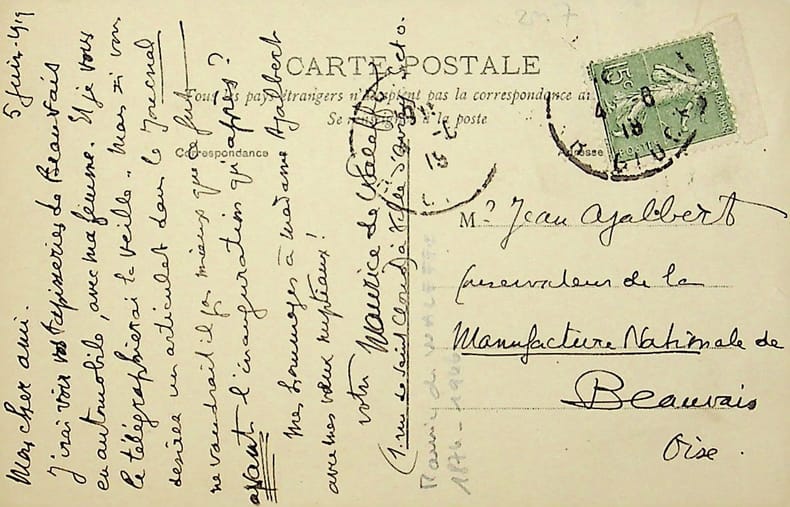 5 juin 1919
Mon cher ami.
J'irai voir vos tapisseries de Beauvais
en automobile, avec ma femme. Et je vous
le télégraphierai la veille. Mais si vous
désirez un articulet dans le Journal
ne vaudrait-il pas mieux que ce fut
avant l'inauguration qu'après?
Mes hommages à madame Ajalbert
avec mes vœux nuptiaux!
votre Maurice de Waleffe
(1. rue de Saint Cloud, à Ville d'Avray
CARTE POSTALE
Tous les pays étrangers n'acceptent pas la correspondance au
Se renseigner à la poste
Correspondance
Adresse
15c
Mr Jean Ajalbert
Conservateur de la
Manufacture Nationale de
Beauvais
Oise.
Maurice de WALEFFE
1874-1946